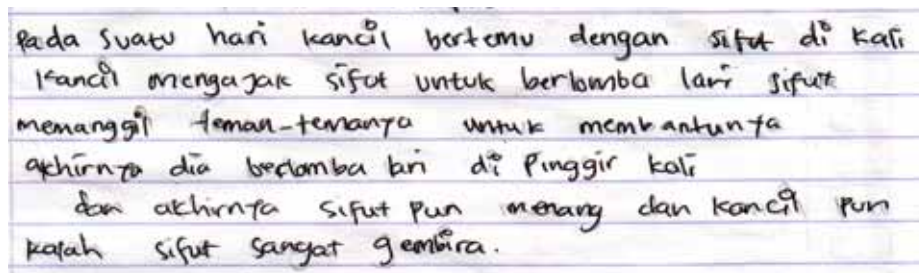 Pada suatu hari kancil bertemu dengan sifut di kali
Kancil mengajak sifut untuk berlomba lari sifut
memanggil teman-temanya untuk membantunya
akhirnya dia berlomba lari di Pinggir kali
dan akhirnya sifut pun menang dan kancil pun
kalah sifut sangat gembira.